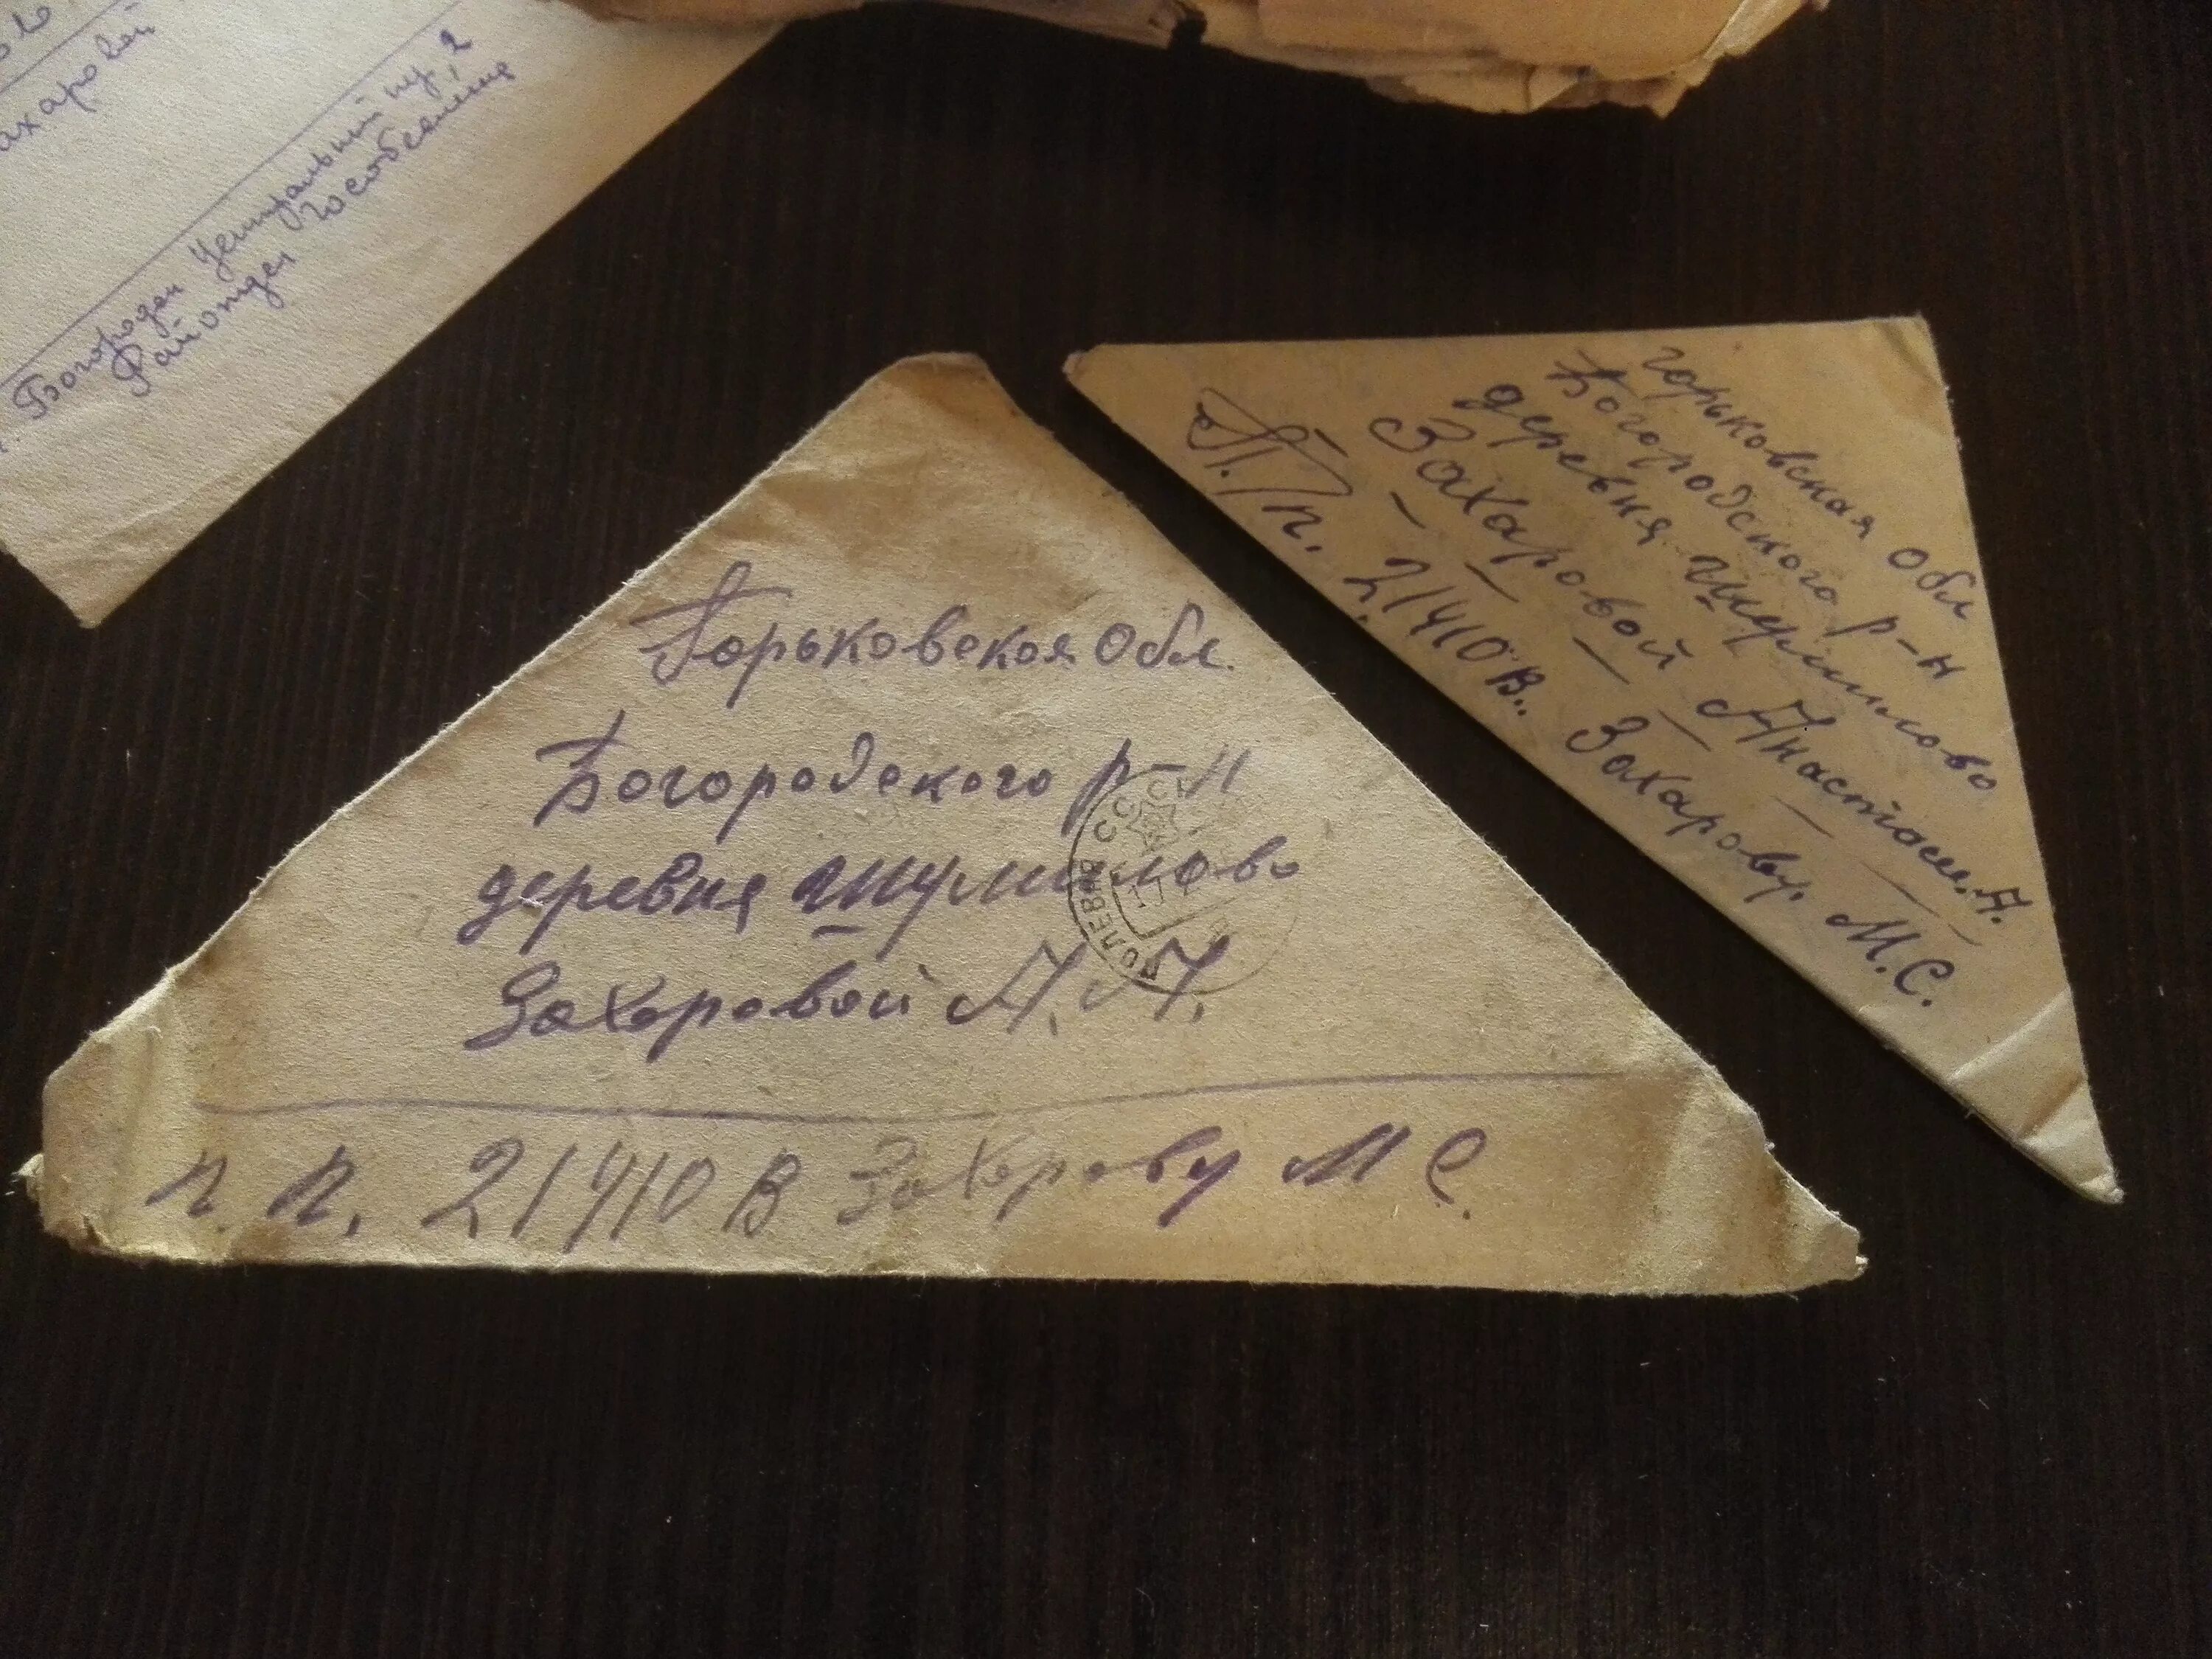 ахаровой
Богородск Центральный пу, 2
Райотдел Гособеспеч
Горьковская Обл.
Богородского р-н
деревня шумилово
Захаровой А. А.
п. п. 21410 В Захарову М С.
ПОЛЕВАЯ СССР
Горьковская Обл
Богородского р-н
деревня Шумилово
Захаровой Анастасеи. А.
П. п. 21410 В. Захарову. М. С.